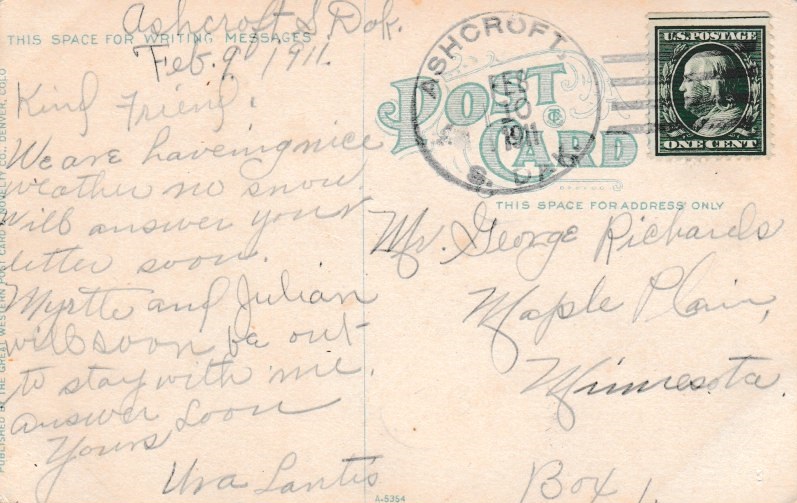 Ashcroft S. Dak.
THIS SPACE FOR WRITING MESSAGES
Feb. 9 1911.
Kind Friend:
We are haveing nice
weather no snow.
Will answer your
letter soon.
Myrtle and Julian
will soon be out
to stay with me.
answer soon
Yours
Ura Lantis
PUBLISHED BY THE GREAT WESTERN POST CARD & NOVELTY CO., DENVER, COLO
A-5354
POST
CARD
ASHCROFT,
FEB
10
1911
S. DAK.
U.S. POSTAGE
ONE CENT
THIS SPACE FOR ADDRESS ONLY
Mr. George Richards
Maple Plain,
Minnesota.
Box 1